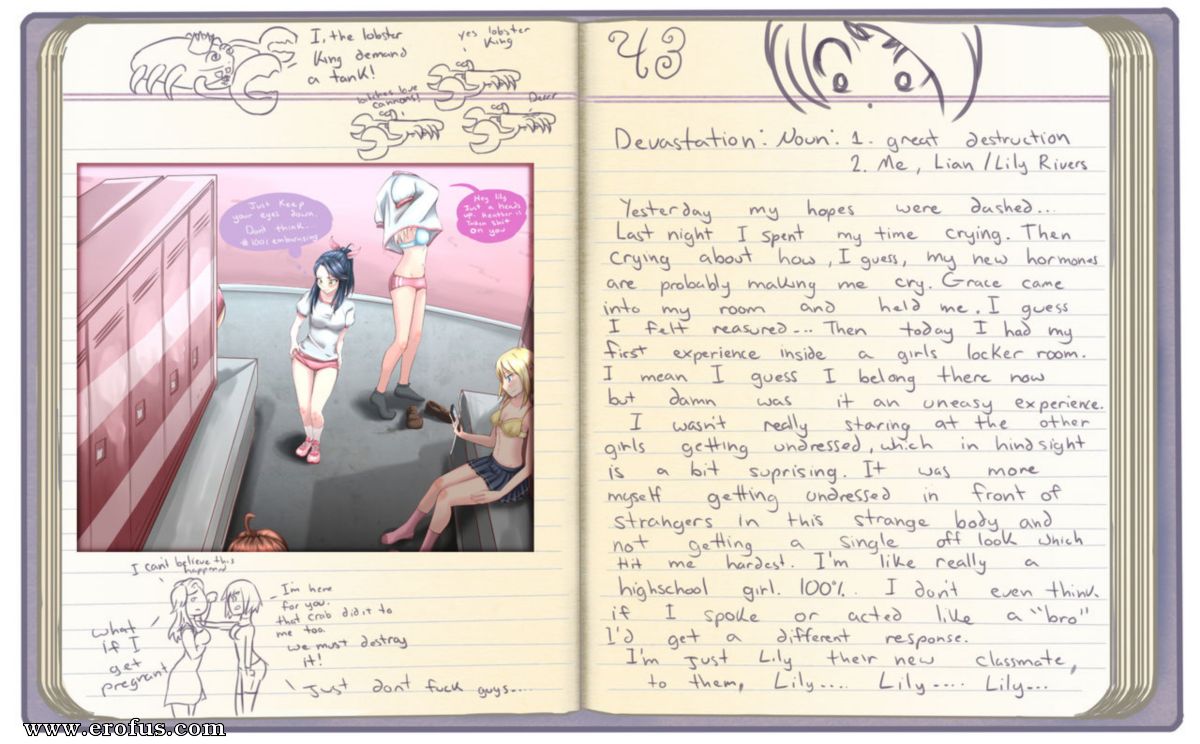 I, the lobster
King demand
a tank!
yes lobster
King
lobches love
cannons!
Derrr
Just Keep
your eyes down.
Dont think...
#100% embarasing
Hey lily
Just a heads
up. Heather is
Talken Shit
On you
I cant believe this
happened
what
if I
get
pregnant
I'm here
for you.
that crab did it to
me too.
we must destroy
it!
Just dont fuck guys....
43
Devastation: Noun: 1. great destruction
2. Me, Lian/Lily Rivers
Yesterday my hopes were dashed...
Last night I spent my time crying. Then
crying about how, I guess, my new hormones
are probably making me cry. Grace came
into my room and held me. I guess
I felt reasured... Then today I had my
first experience inside a girls locker room.
I mean I guess I belong there now
but damn was it an uneasy experience.
I wasn't really staring at the other
girls getting undressed, which in hindsight
is a bit suprising. It was more
myself getting undressed in front of
strangers in this strange body and
not getting a single off look which
Hit me hardest. I'm like really a
highschool girl. 100%. I don't even think
if I spoke or acted like a "bro"
I'd get a different response.
I'm just Lily their new classmate,
to them, Lily.... Lily.... Lily...
www.erofus.com